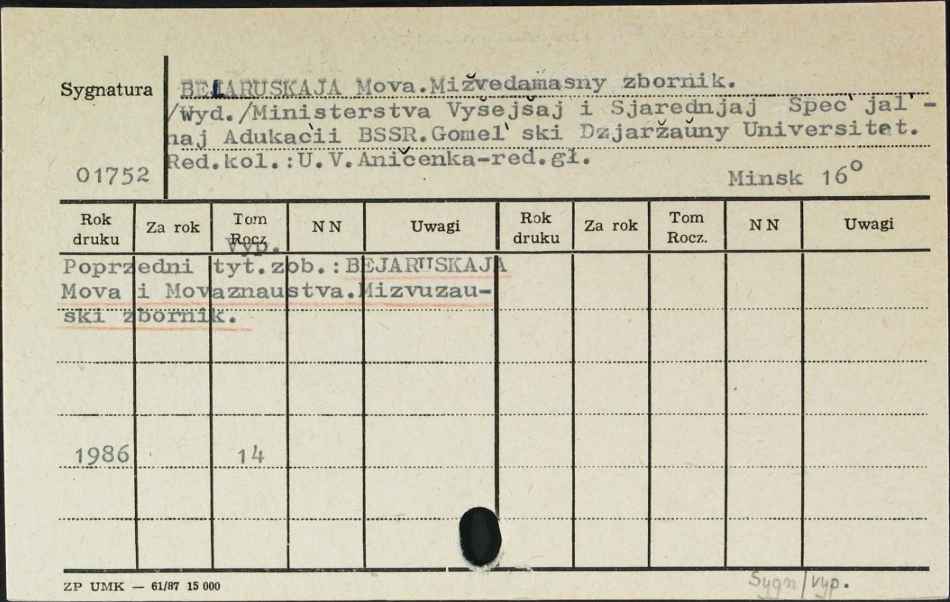 Sygnatura
BEJARUSKAJA Mova.Mižvedamasny zbornik.
/Wyd./Ministerstva Vyšejšaj i Sjarednjaj Spec`jal'-
naj Adukacii BSSR.Gomel`ski Dzjaržaŭny Universitet.
Red.kol.:U.V.Aničenka-red.gł.
01752
Minsk 16°
Rok druku Za rok Tom Rocz. NN Uwagi Rok druku Za rok Tom Rocz. NN Uwagi
Vyp.
Poprzedni tyt.zob.:BEJARUSKAJA
Mova i Movaznaustva.Mizvuzau-
ski zbornik.
1986 14
ZP UMK — 61/87 15 000
Sygn/vyp.